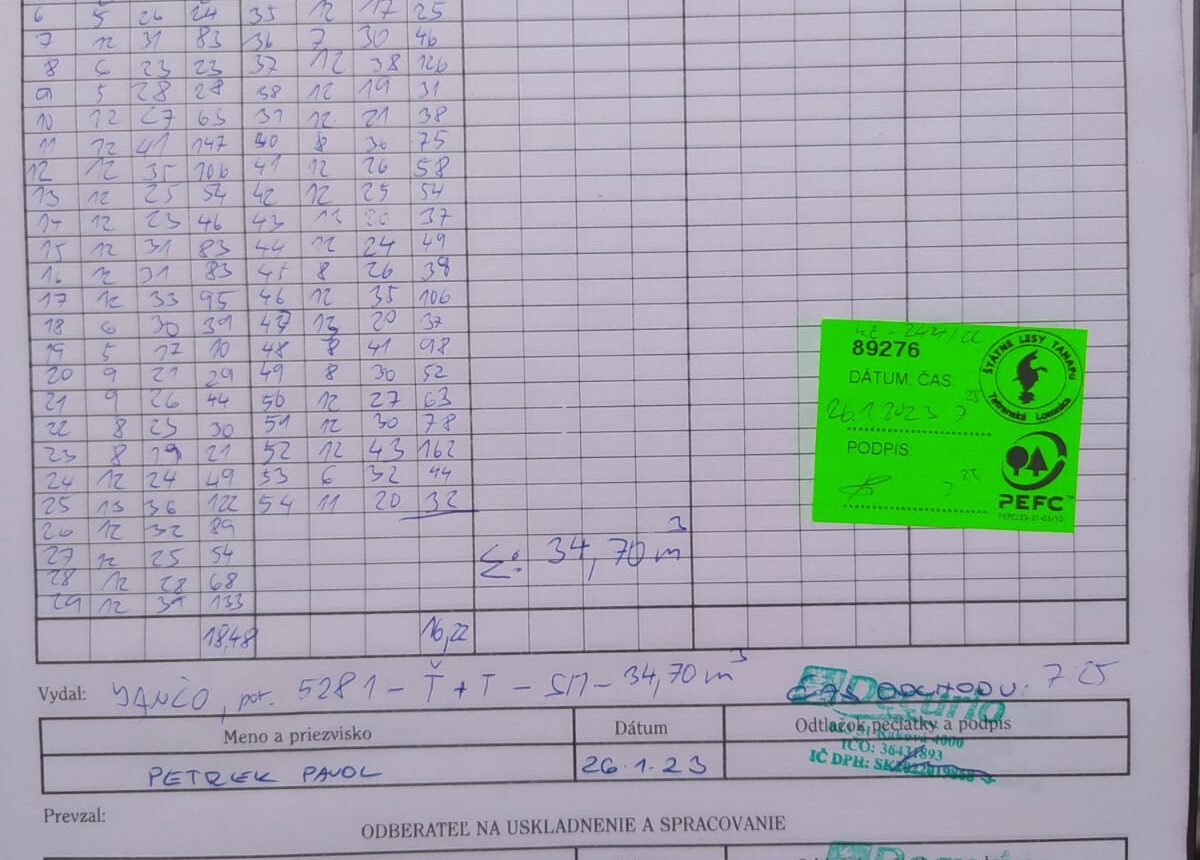 6 5 26 24 35 12 17 25
7 12 31 83 36 7 30 46
8 6 23 23 37 12 38 126
9 5 28 28 38 12 19 31
10 12 27 65 39 12 21 38
11 12 41 147 40 8 36 75
12 12 35 106 41 12 26 58
13 12 25 54 42 12 25 54
14 12 23 46 43 13 20 37
15 12 31 83 44 12 24 49
16 12 31 83 45 8 26 38
17 12 33 95 46 12 35 106
18 6 30 39 47 13 20 37
19 5 17 10 48 8 41 98
20 9 21 29 49 8 30 52
21 9 26 44 50 12 27 63
22 8 23 30 51 12 30 78
23 8 19 21 52 12 43 162
24 12 24 49 53 6 32 44
25 13 36 122 54 11 20 32
26 12 32 89
27 12 25 54
28 12 28 68
29 12 39 133
Σ: 34,70 m³
18,48 16,22
89276
DÁTUM, ČAS:
26.1.2023 7 25
PODPIS:
ŠTÁTNE LESY TANAPu
Tatranská Lomnica
PEFC™
Vydal: JANČO, por. 5281 - Ť + T - SM - 34,70 m³
ČAS ODCHODU: 7.25
Meno a priezvisko Dátum Odtlačok pečiatky a podpis
PETREK PAVOL 26.1.23
Decurio
IČO: 36431893
IČ DPH:
Prevzal:
ODBERATEĽ NA USKLADNENIE A SPRACOVANIE